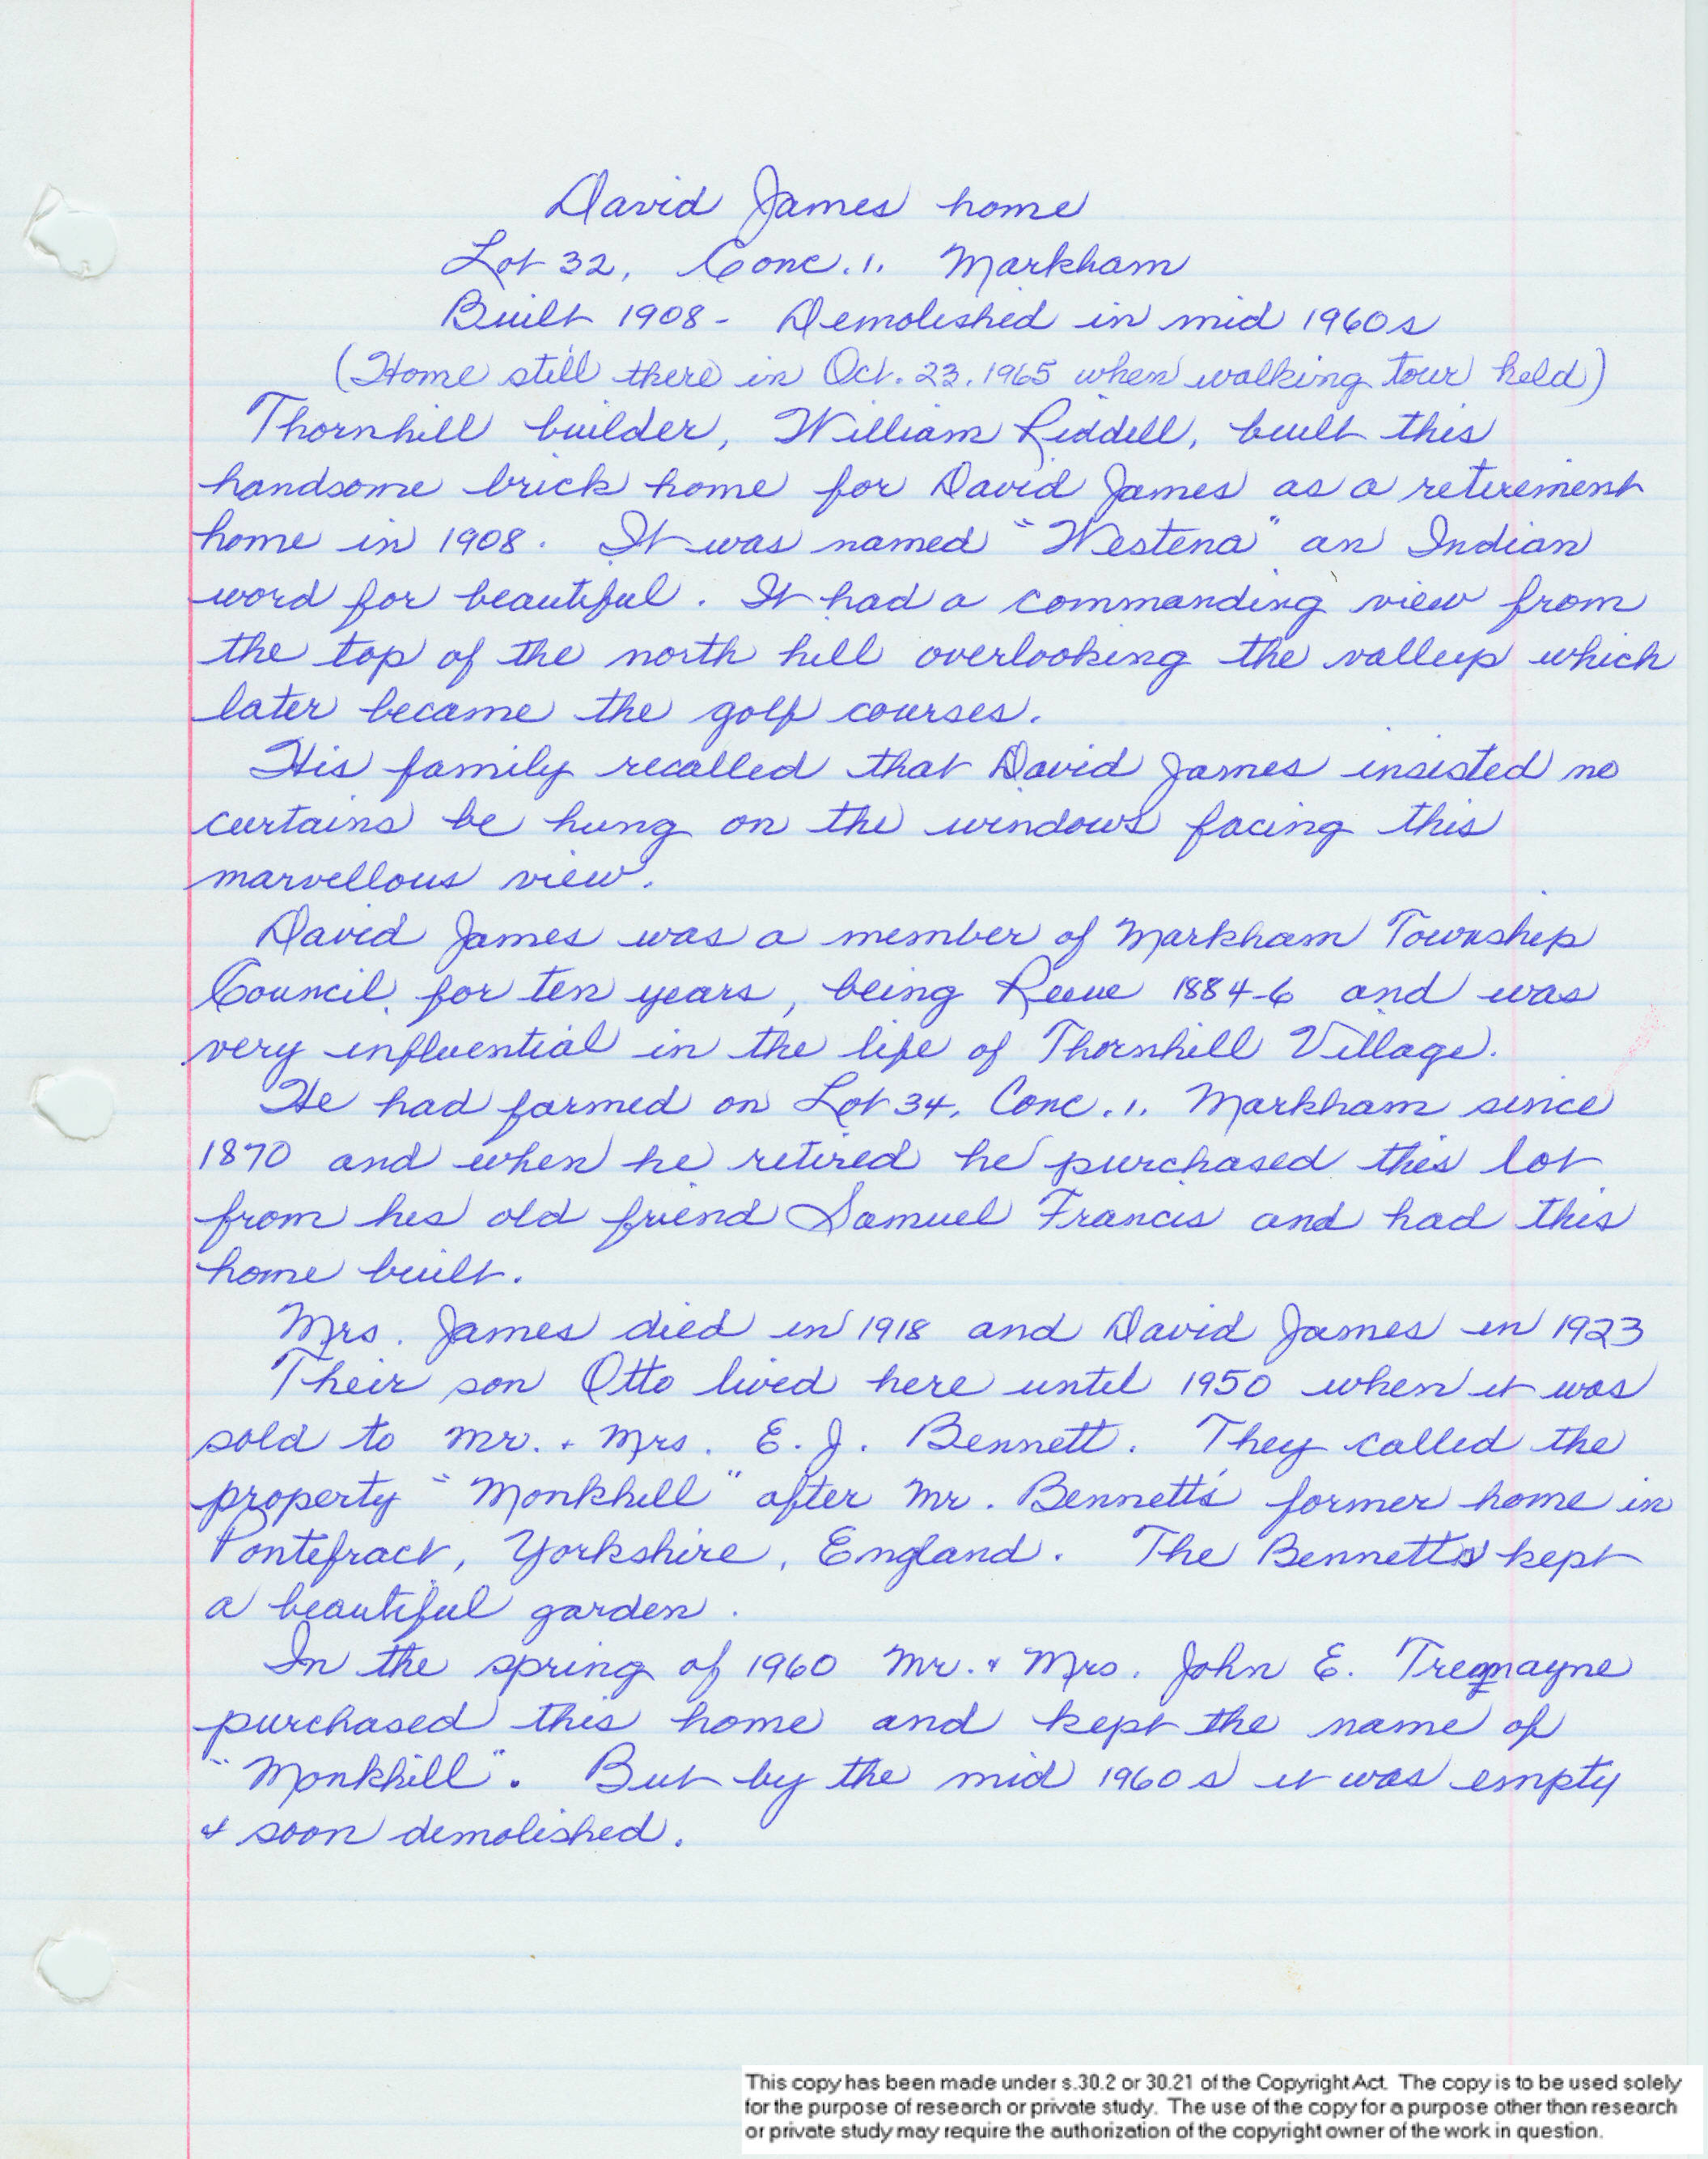 David James home
Lot 32, Conc. 1. Markham
Built 1908 - Demolished in mid 1960s
(Home still there in Oct. 23, 1965 when walking tour held)
Thornhill builder, William Riddell, built this
handsome brick home for David James as a retirement
home in 1908. It was named "Westena" an Indian
word for beautiful. It had a commanding view from
the top of the north hill overlooking the valley which
later became the golf courses.
His family recalled that David James insisted no
curtains be hung on the windows facing this
marvellous view.
David James was a member of Markham Township
Council for ten years, being Reeve 1884-6 and was
very influential in the life of Thornhill Village.
He had farmed on Lot 34, Conc. 1. Markham since
1870 and when he retired he purchased this lot
from his old friend Samuel Francis and had this
home built.
Mrs. James died in 1918 and David James in 1923
Their son Otto lived here until 1950 when it was
sold to Mr. & Mrs. E. J. Bennett. They called the
property "Monkhill" after Mr. Bennett's former home in
Pontefract, Yorkshire, England. The Bennetts kept
a beautiful garden.
In the spring of 1960 Mr. & Mrs. John E. Tremayne
purchased this home and kept the name of
"Monkhill". But by the mid 1960s it was empty
& soon demolished.
This copy has been made under s.30.2 or 30.21 of the Copyright Act. The copy is to be used solely
for the purpose of research or private study. The use of the copy for a purpose other than research
or private study may require the authorization of the copyright owner of the work in question.